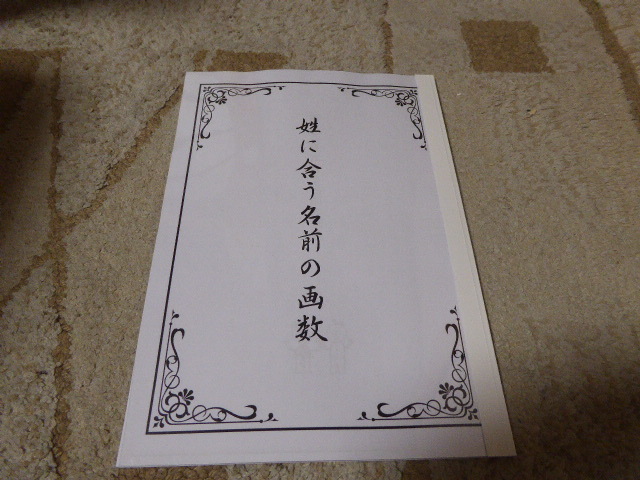 姓に合う名前の画数